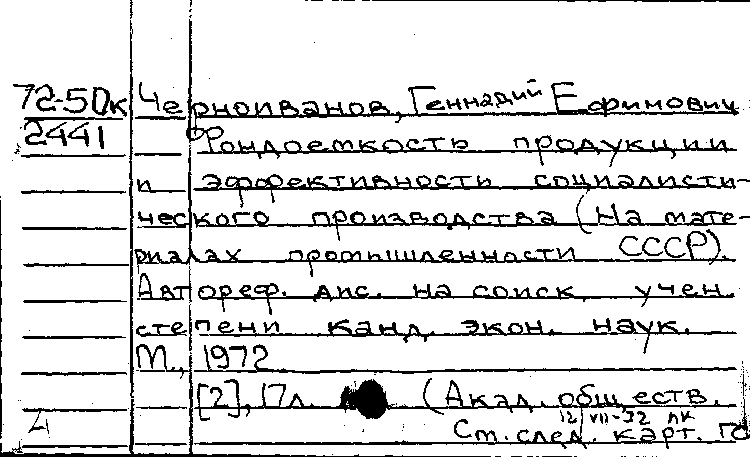 72-50к Черноиванов, Геннадий Ефимович
2441 Фондоемкость продукции
и эффективности социалисти-
ческого производства (На мате-
риалах промышленности СССР).
Автореф. дис. на соиск. учен.
степени канд. экон. наук.
М., 1972
[2], 17 л. (Акад. обществ.
12/VII-72 ЛК
Ст. след. карт.